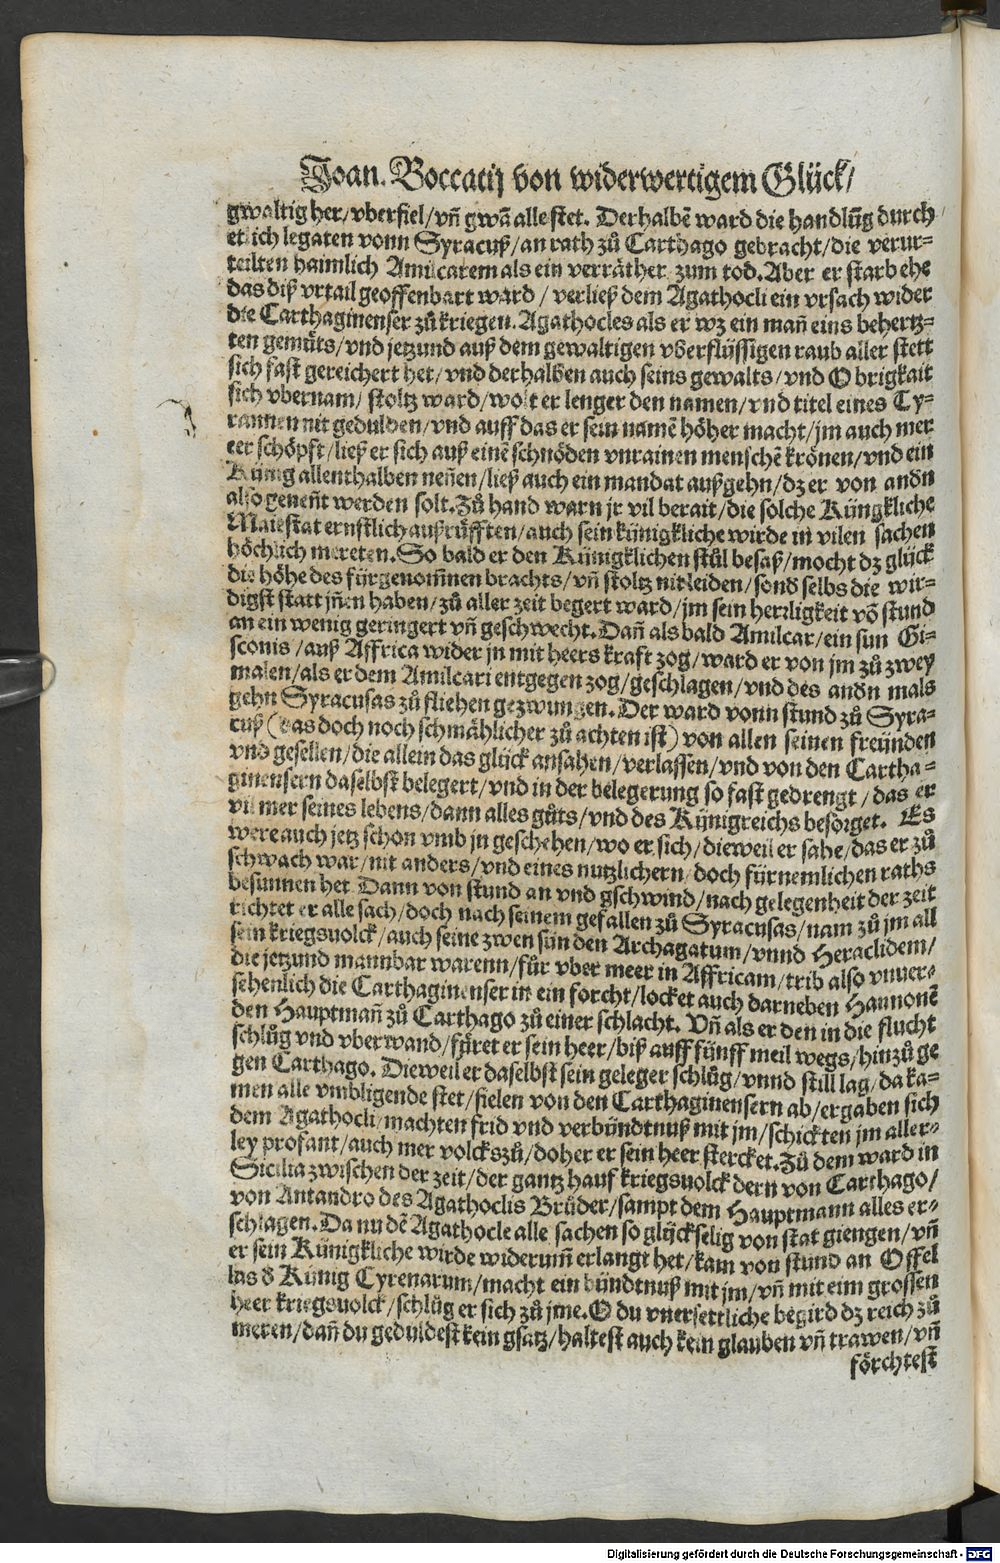 Joan. Boccatij von widerwertigem Glück/
gwaltig her/vberfiel/vñ gwã alle stet. Derhalbẽ ward die handlũg durch
etlich legaten vonn Syracuß/an rath zů Carthago gebracht/die verur⸗
teilten haimlich Amilcarem als ein verräther zum tod. Aber er starb ehe
das diß vrtail geoffenbart ward/ verließ dem Agathocli ein vrsach wider
die Carthaginenser zů kriegen. Agathocles als er wz ein mañ eins behertz⸗
ten gemüts/vnd jetzund auß dem gewaltigen vberflüssigen raub aller stett
sich fast gereichert het/vnd derhalben auch seins gewalts/vnd Obrigkait
sich vbernam/ stoltz ward/wolt er lenger den namen/vnd titel eines Ty⸗
rannen nit gedulden/vnd auff das er sein namẽ höher macht/jm auch mer
eer schöpft/ließ er sich auß einẽ schnöden vnrainen menschẽ krönen/vnd ein
Künig allenthalben neñen/ließ auch ein mandat außgehn/dz er von andn
also geneñt werden solt. Zů hand warn jr vil berait/die solche Küngkliche
Maiestat ernstlich außrüfften/auch sein künigkliche wirde in vilen sachen
höchlich mereten. So bald er den Künigklichen stůl besaß/mocht dz glück
die höhe des fürgenom̃nen brachts/vñ stoltz nit leiden/sond selbs die wir⸗
digst statt jñen haben/zů aller zeit begert ward/jm sein herrligkeit võ stund
an ein wenig geringert vñ geschwecht. Dañ als bald Amilcar/ein sun Gi⸗
sconis/auß Affrica wider jn mit heers kraft zog/ward er von jm zů zwey
malen/als er dem Amilcari entgegen zog/geschlagen/vnd des andn mals
gehn Syracusas zů fliehen gezwungen. Der ward vonn stund zů Syra⸗
cuß (das doch noch schmählicher zů achten ist) von allen seinen freünden
vnd gesellen/die allein das glück ansahen/verlassen/vnd von den Cartha⸗
ginensern daselbst belegert/vnd in der belegerung so fast gedrengt/das er
vil mer seines lebens/dann alles gůts/vnd des Künigreichs besorget. Es
were auch jetz schon vmb jn geschehen/wo er sich/dieweil er sahe/das er zů
schwach war/nit anders/vnd eines nutzlichern/doch fürnemlichen raths
besunnen het. Dann von stund an vnd gschwind/nach gelegenheit der zeit
richtet er alle sach/doch nach seinem gefallen zů Syracusas/nam zů jm all
sein kriegsuolck/auch seine zwen sün den Archagatum/vnnd Heraclidem/
die jetzund mannbar warenn/für vber meer in Affricam/trib also vnuer⸗
sehenlich die Carthaginenser in ein forcht/locket auch darneben Hannonẽ
den Hauptmañ zů Carthago zů einer schlacht. Vñ als er den in die flucht
schlůg vnd vberwand/füret er sein heer/biß auff fünff meil wegs/hinzů ge
gen Carthago. Dieweil er daselbst sein geleger schlůg/vnnd still lag/da ka⸗
men alle vmbligende stet/fielen von den Carthaginensern ab/ergaben sich
dem Agathocli/machten frid vnd verbündtnuß mit jm/schickten jm aller⸗
ley profant/auch mer volcks zů/doher er sein heer stercket. Zů dem ward in
Sicilia zwischen der zeit/der gantz hauf kriegsuolck dern von Carthago/
von Antandro des Agathoclis Brůder/sampt dem Hauptmann alles er⸗
schlagen. Da nu dẽ Agathocle alle sachen so glückselig von stat giengen/vñ
er sein Künigkliche wirde widerum̃ erlangt het/kam von stund an Offel
las d Künig Cyrenarum/macht ein bündtnuß mit jm/vñ mit eim grossen
heer kriegsuolck/schlůg er sich zů jme. O du vnersettliche begird dz reich zů
meren/dañ du geduldest kein gsatz/haltest auch kein glauben vñ trawen/vñ
förchtest
Digitalisierung gefördert durch die Deutsche Forschungsgemeinschaft - DFG